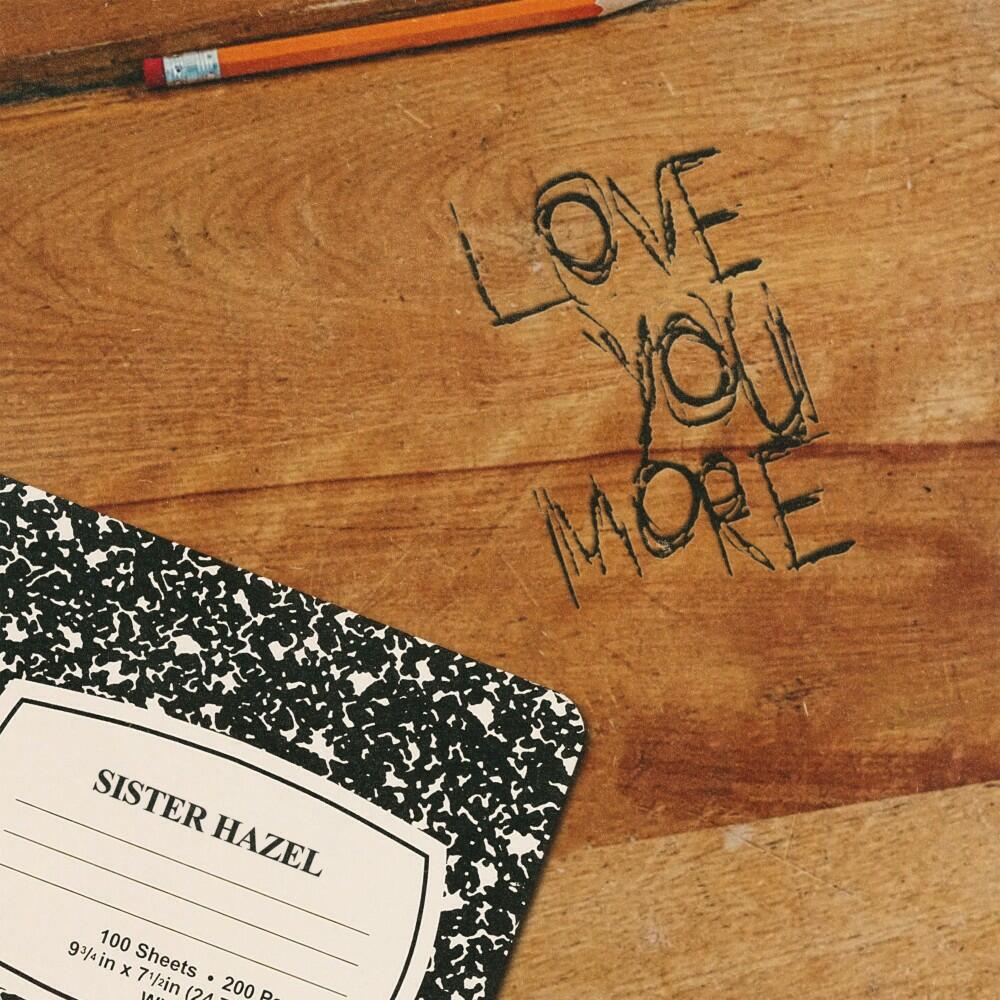 LOVE
YOU
MORE
SISTER HAZEL
100 Sheets • 200
9 3/4 in x 7 1/2 in (24